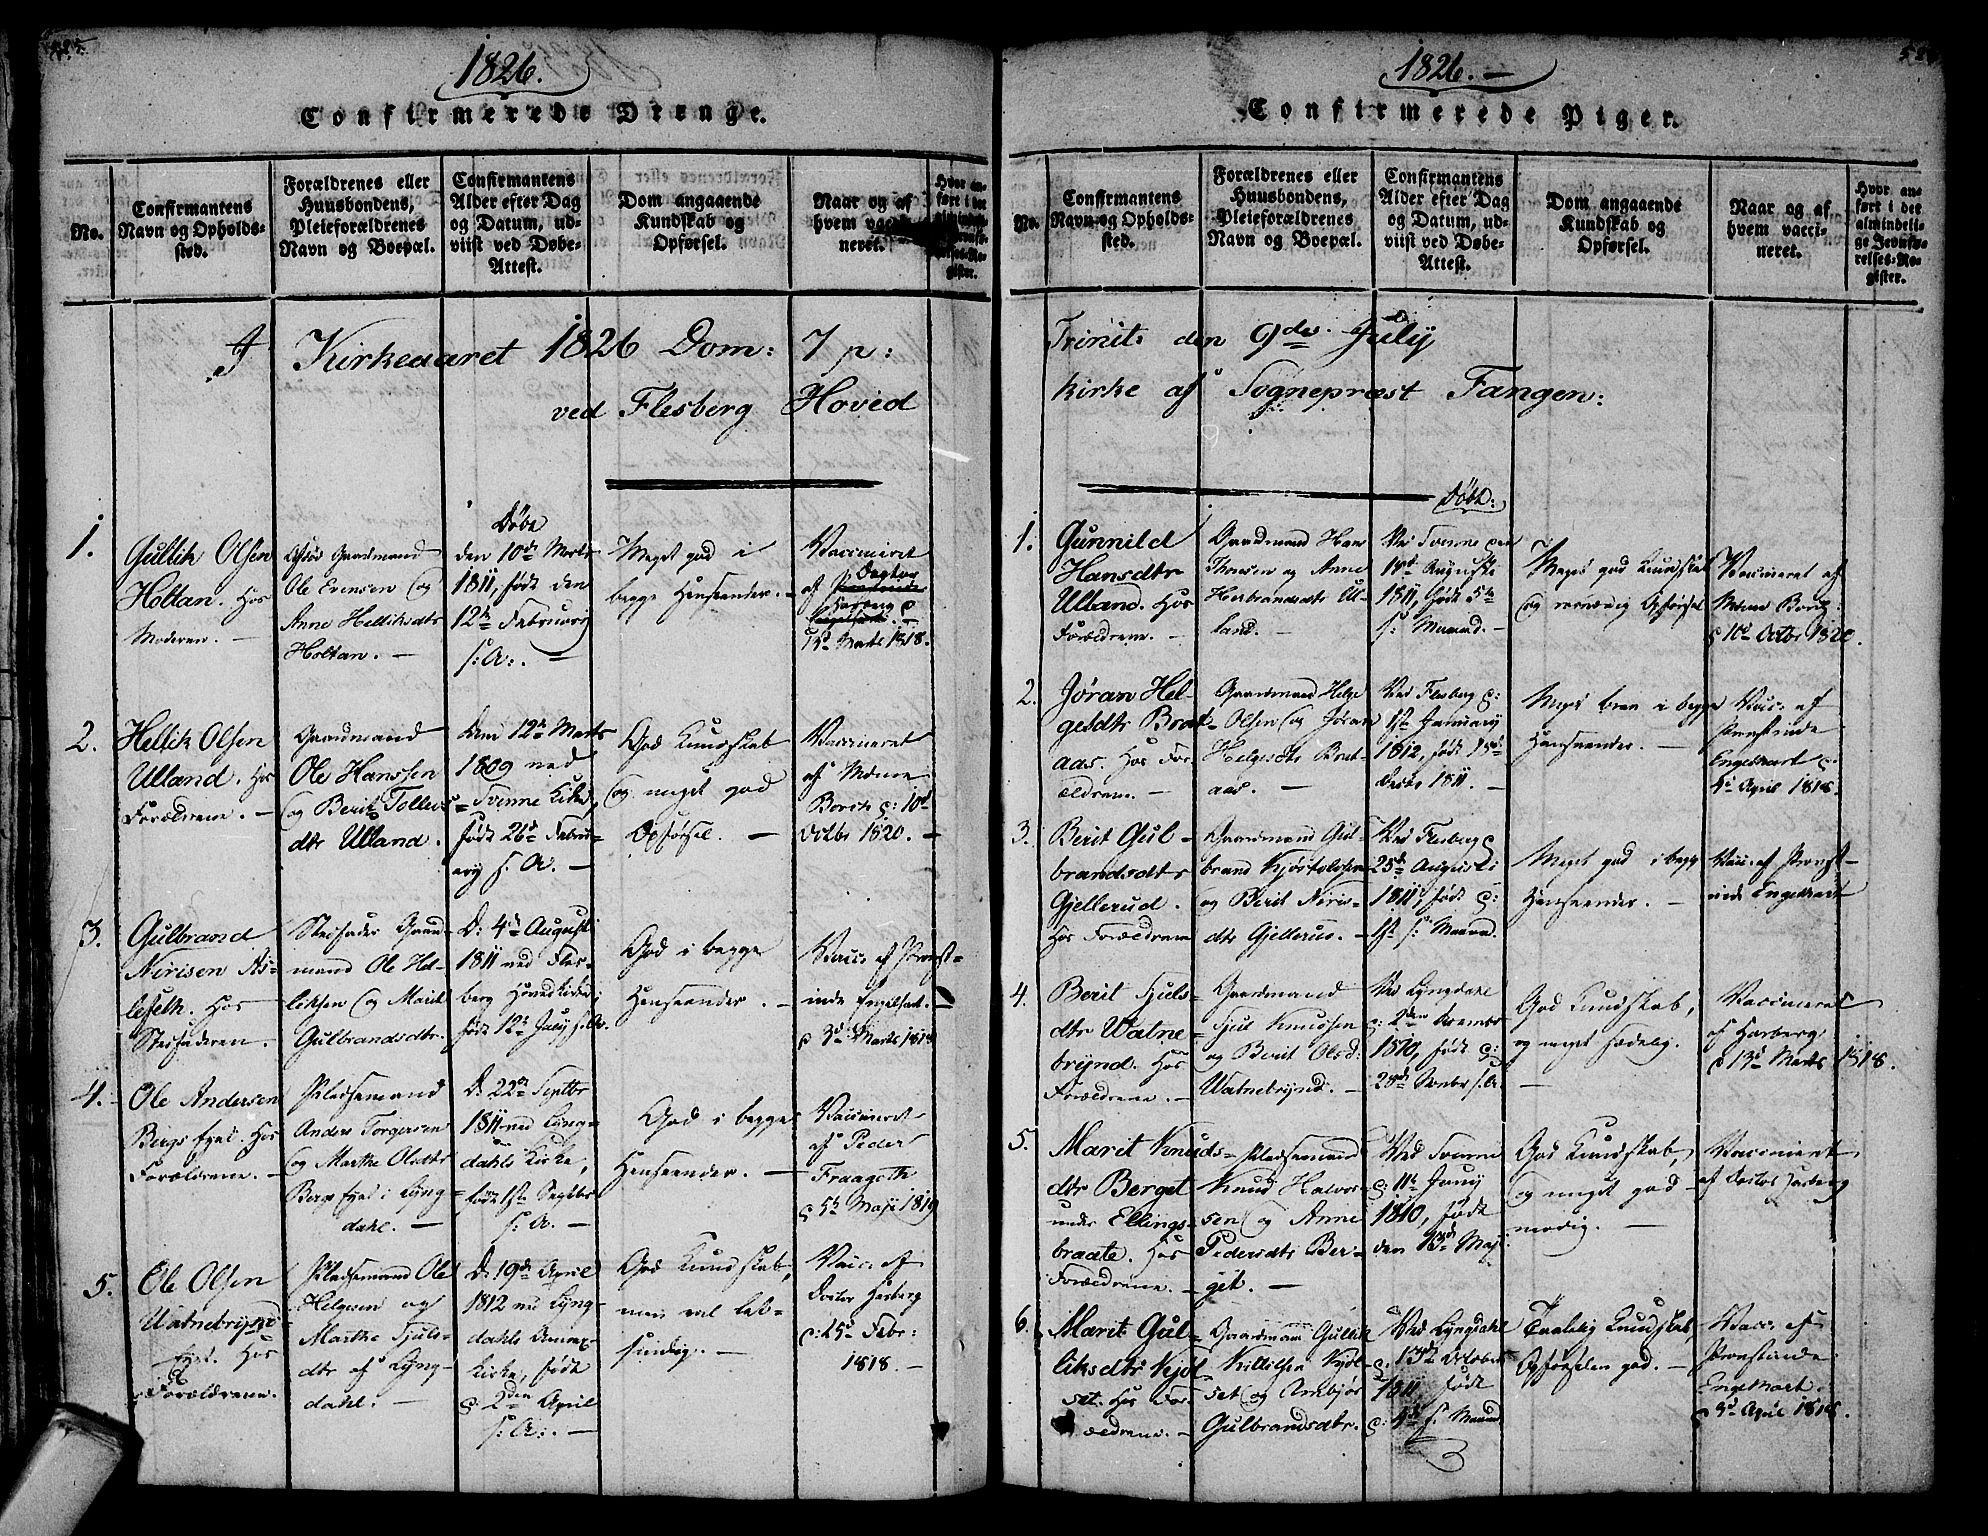 1826.
Confirmerede Drenge.
No.
Confirmantens
Navn og Opholds-
sted.
Forældrenes eller
Huusbondens,
Pleieforældrenes
Navn og Boepæl.
Confirmantens
Alder efter Dag
og Datum, ud-
viist ved Døbe-
Attest.
Dom angaaende
Kundskab og
Opførsel.
Naar og af
hvem vacci-
neret.
I Kirkeaaret 1826 Dom: 7 p:
ved Flesberg Hoved
1.
Gullik Olsen
Holtan. Hos
Moderen. —
Gaardmand
Ole Evensen og
Anne Helliksdtr
Holtan. —
Døbt
den 10de Marts
1811, født den
12te Februarij
s: A: —
Meget god i
begge Henseender. —
Vaccineret
af
Doctor
Harberg
Marts 1818.
2.
Hellik Olsen
Ulland. Hos
Forældrene. —
Gaardmand
Ole Hanssen
og Berit Tollevs-
dtr Ulland.
Den 12te Marts
1809 ved
Svenne Kirke,
født 26de Febru-
arij s: A. —
God Kundskab
og meget god
Opførsel. —
Vaccineret
af Mœne
Borch d: 10de
Octbr 1820. —
3.
Gulbrand
Nirisen As-
leseth. Hos
Stedfaderen. —
Stedfader Gaard-
mand Ole Hel-
liksen og Marit
Gulbrandsdtr.
D. 4de Augusti
1811 ved Fles-
berg Hovedkirke
født 12te July s: A.
God i begge
Henseender. —
Vacc. af Præst-
inde Engelhart. —
d 3de Marts 1818
4.
Ole Andersen
Bergs Eyet. Hos
Forældrene. —
Pladsemand
Anders Torgersen
og Marthe Olsdtr
Bergs Eyet i Lyng-
dahl. —
D. 22de Septbr
1811 ved Lyng-
dahls Kirke,
født 1ste Septbr
s: A. —
God i begge
Henseender. —
Vaccineret
af Peder
Fraageth
d 5te Maji 1819
5.
Ole Olsen
Watnebrynd-
Eyet. Hos
Forældrene.
Pladsemand Ole
Helgesen og
Marthe Tjuls-
dtr af Lyng-
dahl. —
D. 19de April
1812 ved Lyng-
dahls Annex-
Kirke, født
d 2den April
s: A: —
God Kundskab,
men vel let-
sindig. —
Vacc. af
Doctor Harberg
d: 25de Febr:
1818. —
1826. —
Confirmerede Piger.
No.
Confirmantens
Navn og Opholds-
sted.
Forældrenes eller
Huusbondens,
Pleieforældrenes
Navn og Boepæl.
Confirmantens
Alder efter Dag
og Datum, ud-
viist ved Døbe-
Attest.
Dom angaaende
Kundskab og
Opførsel.
Naar og af
hvem vacci-
neret.
Hvor an-
ført i det
almindeli-
ge Jevnfø-
relses-Re-
gister.
Trinit: den 9de July
kirke af Sognepræst Fangen:
1.
Gunnild
Hansdtr
Ulland. Hos
Forældrene. —
Gaardmand Hans
Thorsen og Anne
Herbrandsdtr Ul-
land. —
Døbt:
Ved Svenne den
18de Augusti
1811, født 5te
s: Maaned. —
Meget god Kundskab
og Opførsel
Vaccineret af
Mœne Borch
d 10de Octbr 1820.
2.
Jøran Hel-
gesdtr Braat-
aas. Hos For-
ældrene. —
Gaardmand Helge
Olsen og Jøran
Helgesdtr Braat-
aas. —
Ved Flesberg d:
1ste Januarij
1812, født
Decbr 1811. —
Meget i begge
Henseender. —
Vacc. af
Præstinde
Engelhart d:
April 1818.
3.
Berit Gul-
brandsdtr
Gjellerud.
Hos Forældrene
Gaardmand Gul-
brand Kjøstolsen
og Berit Niris-
dtr Gjellerud. —
Ved Flesberg d
25de Augusti
1811, født d:
1ste s: Maaned.
Meget god i begge
Henseender. —
Vacc. af Præst-
inde Engelhart
4.
Berit Tjuls-
dtr Watne-
brynd. Hos
Forældrene. —
Gaardmand
Tjul Knudsen
og Berit Olsd:
Watnebrynd. —
Ved Lyngdahl
d: 2den
1810, født d:
God Kundskab,
og meget sædelig.
—
Vaccineret
af Harberg
d 13de Marts 1818.
5.
Marit Knuds-
dtr Berget
under Ellings-
braate. Hos
Forældrene. —
Pladsemand
Knud Halvor-
sen og Anne
Pedersdtr Ber-
get. —
Ved Svenne
d: 11te Juny
1810, født
den Maji
God Kundskab,
og meget god-
modig. —
Vaccineret
af Doctor Harberg
6.
Marit Gul-
liksdtr Kjøl-
set. Hos For-
ældrene. —
Gaardmand Gullik
Killilsen Kjøl-
set og Ambjør
Gulbrandsdtr.
Ved Lyngdahl
d. 13de October
1811 født
d: 4de s: Maaned
Taalelig Kundskab
Opførselen god. —
Vacc. af
Præstinde
Engelhart
d 3de April 1818.